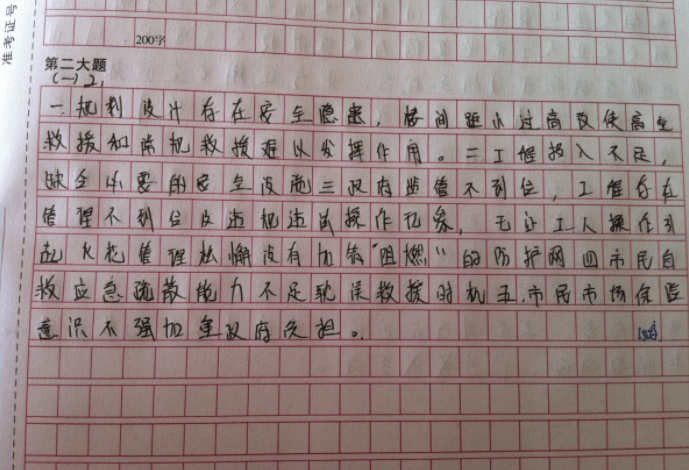 准考证号
200字
第二大题
(一)2,
一.规划设计存在安全隐患，楼间距小过高致使高空
救援和直机救援难以发挥作用。二工程投入不足，
缺全必要的安全设施三政府监管不到位，工程存在
管理不到位及违规违法操作现象，无证工人操作引
起火花管理松懈没有加装"阻燃"的防护网四市民自
救应急疏散能力不足耽误救援时机五.市民市场保险
意识不强加重政府负担。